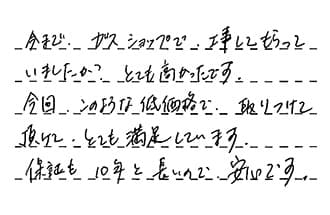 今まで、ガスショップで、工事してもらって
いましたか？とても高かったです。
今回、このような低価格で、取りつけて
頂けて、とても満足しています。
保証も10年と長いので、安心です。